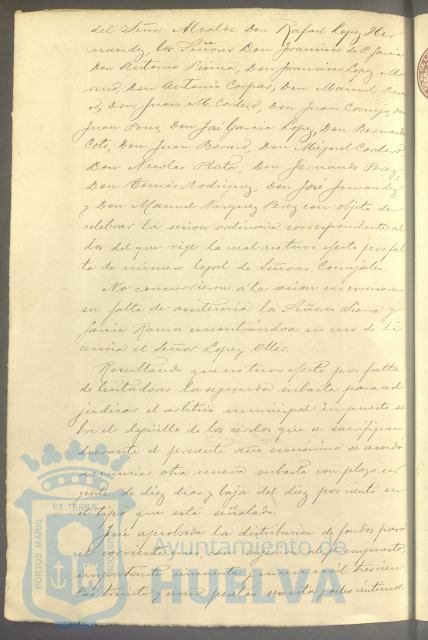 del Señor Alcalde Don Rafael Lopez Her
nandez, los Señores Don Francisco de P. Garcia
Don Antonio Reina, Don Francisco Lopez Mo
reno, Don Antonio Corpas, Don Manuel
Don Juan M. Cordero, Don Juan Cornejo, Don
Juan Pons, Don José Garcia Lopez, Don Bernardo
Coto, Don Juan Don Miguel Cordero
Don Nicolas Plata, Don Fernando Perez,
Don Tomás Rodriguez, Don José Fernandez
y Don Manuel Vazquez Perez con objeto de
celebrar la sesion ordinaria correspondiente al
dos del que rige la cual no tuvo efecto por fal
ta de número legal de Señores Concejales.
No concurrieron á la sesion ni escusaron
su falta de asistencia los Señores Sierra y
Garcia Ramos encontrándose en uso de li
cencia el Señor Lopez Oller.
Resultando que no tuvo efecto por falta
de licitadores la segunda subasta para ad
judicar el arbitrio municipal impuesto so
bre el degüello de los cerdos que se sacrifiquen
durante el presente año económico se acordó
anunciar otra nueva subasta con plazo ur
gente de diez dias y baja del diez por ciento en
el tipo que está señalado.
Fué aprobada la distribucion de fondos para
el corriente mes con arreglo al presupuesto,
importante cincuenta y nueve mil trescien
tas treinta y cinco pesetas sesenta y ocho centimos.
PORTUS MARIS
ET TERRAE
CUSTODIA
Ayuntamiento de
HUELVA